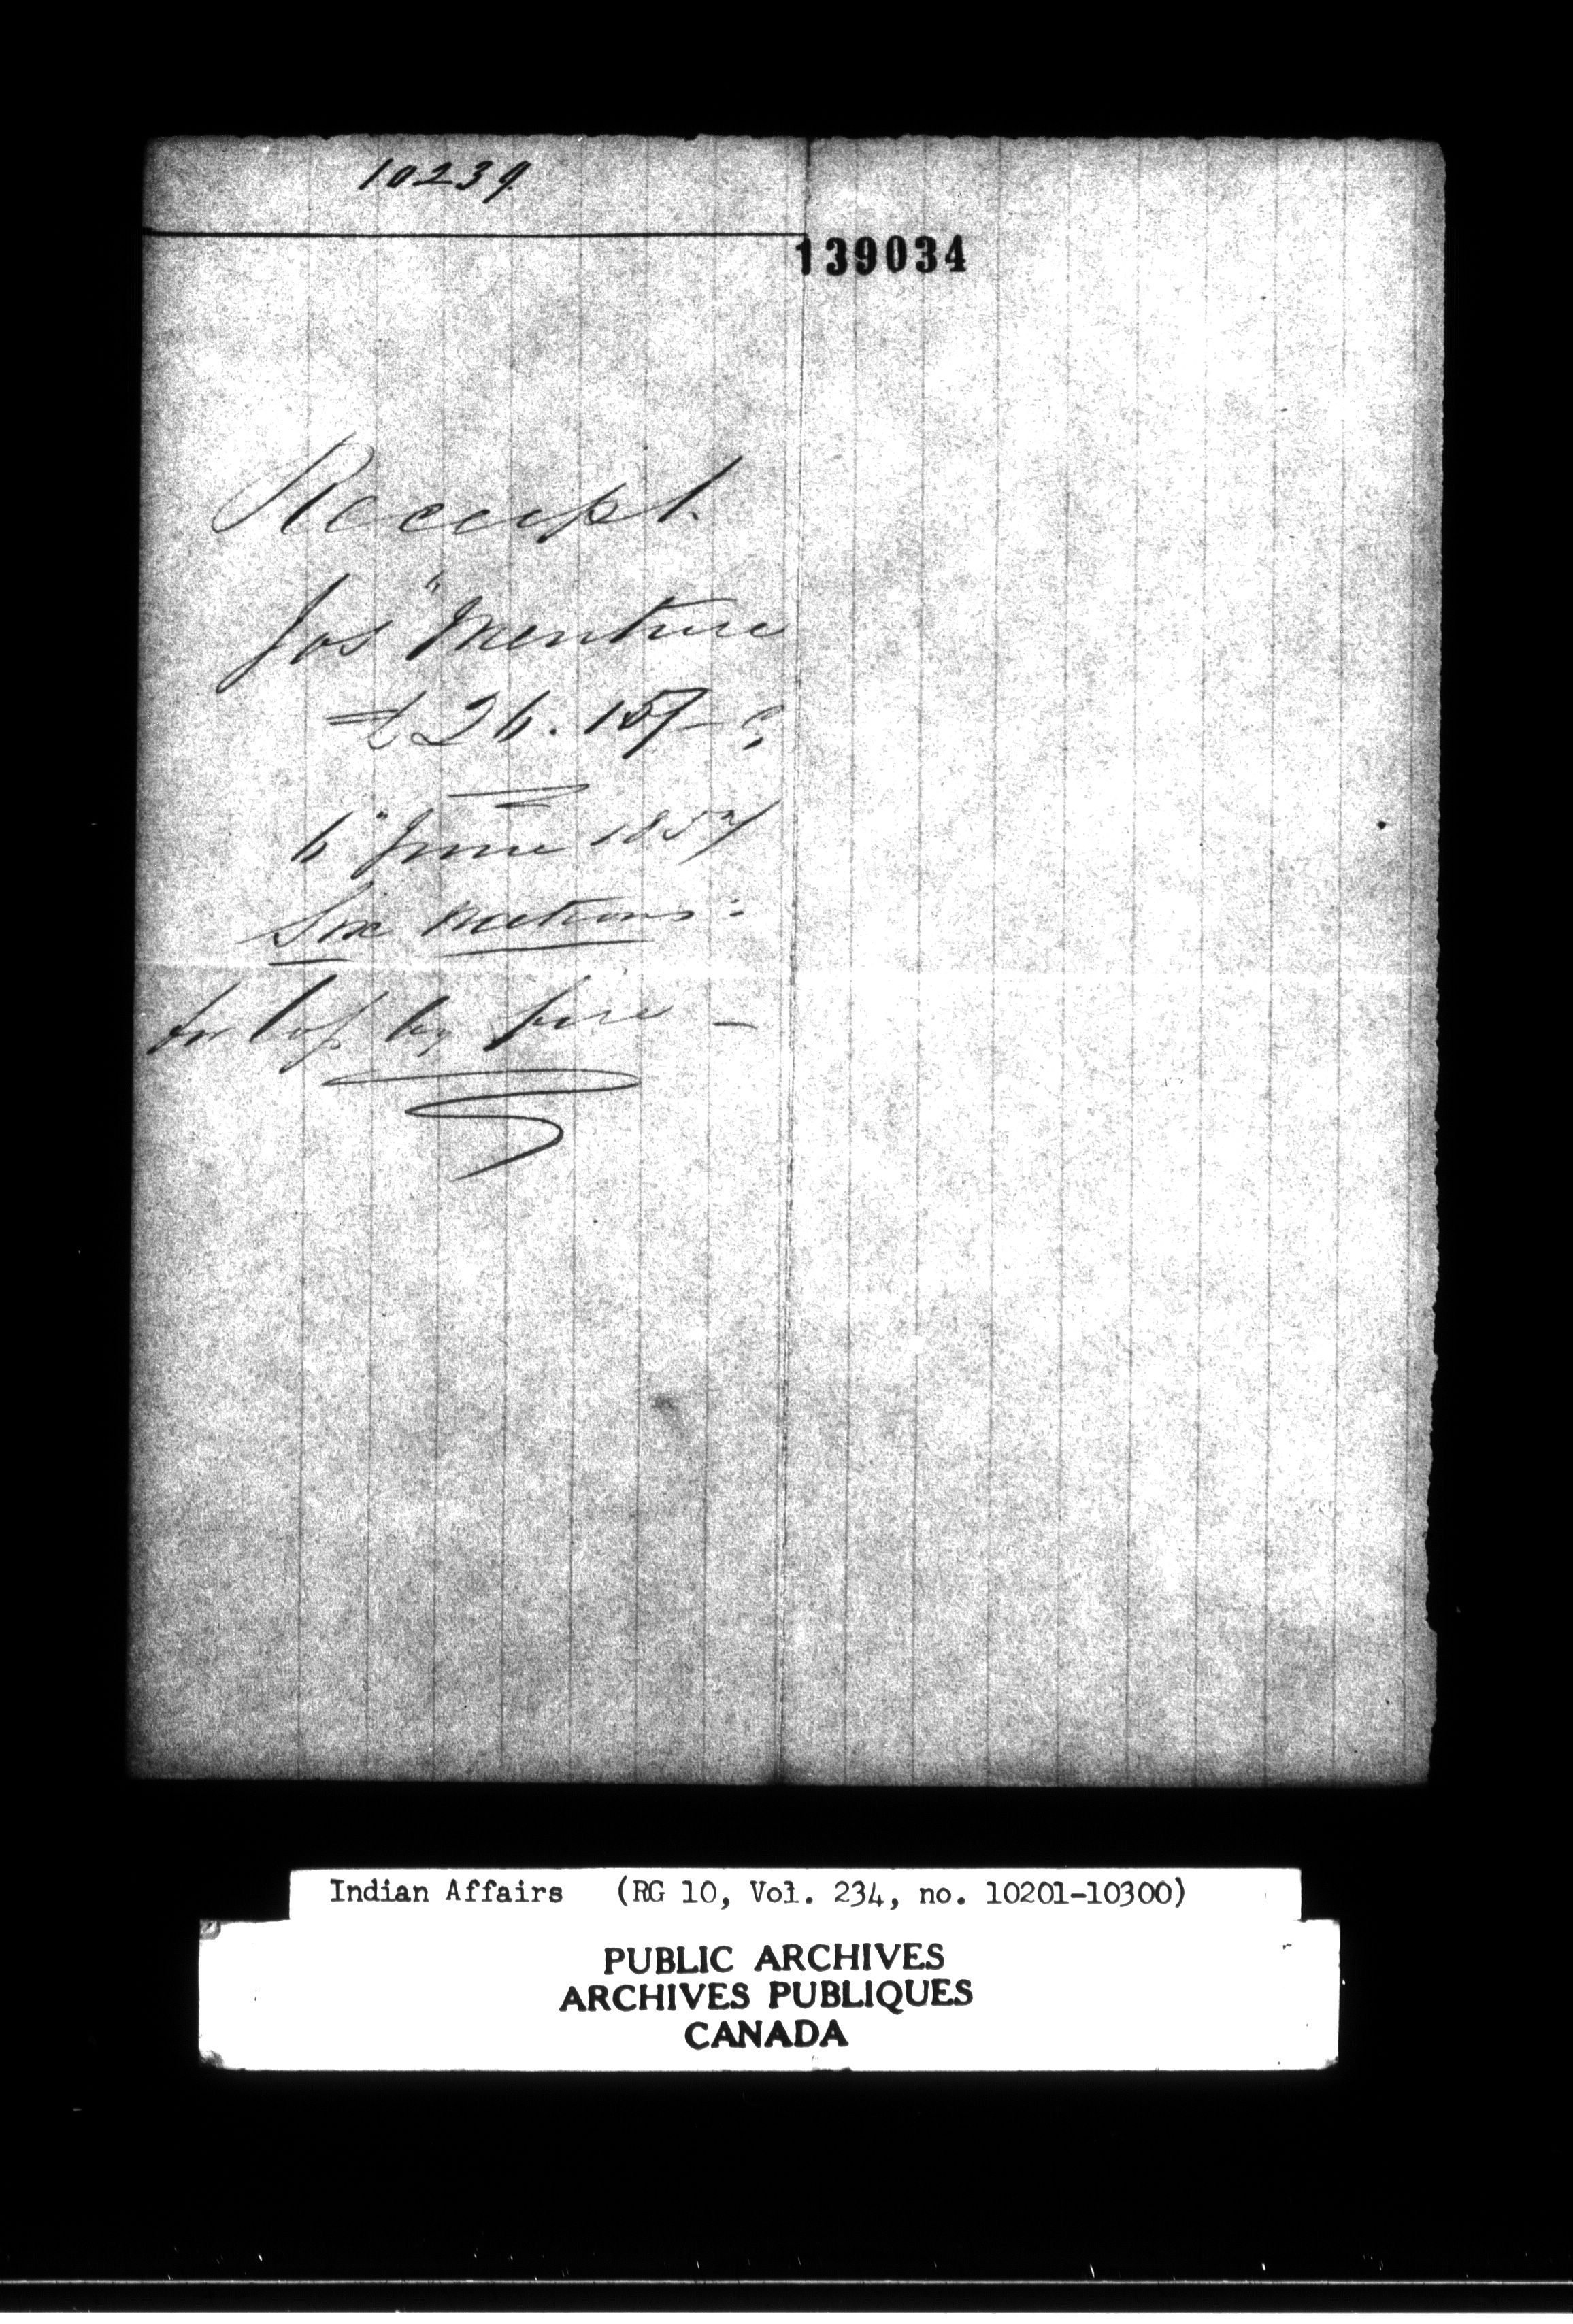 10239
139034
Receipt.
Jos" Menture
£26.15/- Cy
6" June 1857
Six Nations:
for loss by fire —
Indian Affairs (RG 10, Vol. 234, no. 10201-10300)
PUBLIC ARCHIVES
ARCHIVES PUBLIQUES
CANADA